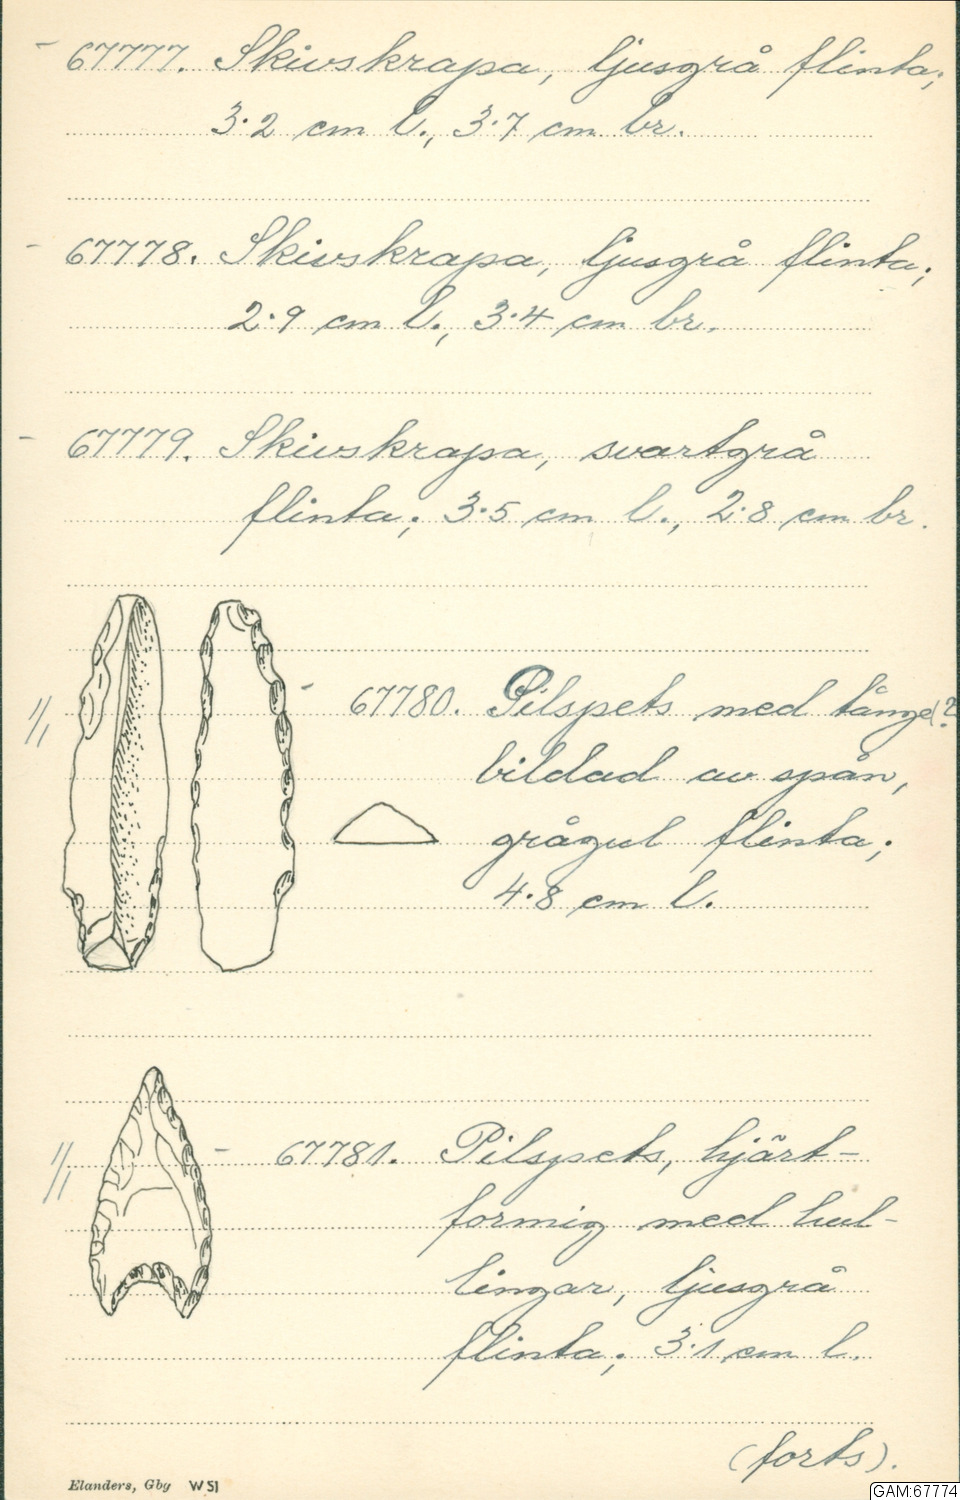 - 67777. Skivskrapa, ljusgrå flinta;
3·2 cm l., 3·7 cm br.
- 67778. Skivskrapa, ljusgrå flinta;
2·9 cm l., 3·4 cm br.
- 67779. Skivskrapa, svartgrå
flinta; 3·5 cm l., 2·8 cm br.
1/1
- 67780. Pilspets med tånge(?
bildad av spån,
grågul flinta;
4·8 cm l.
1/1
- 67781. Pilspets, hjärt-
formig med hul-
lingar, ljusgrå
flinta; 3·1 cm l.
(forts).
Elanders, Gby W 51
GAM:67774